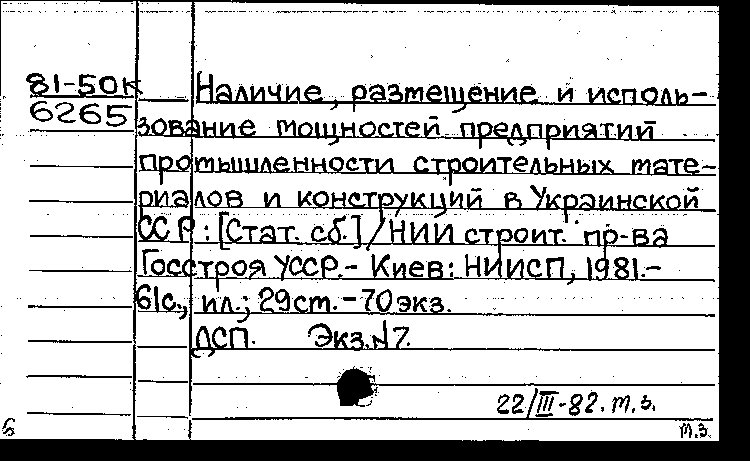 81-50К
6265
Наличие, размещение и исполь-
зование мощностей предприятий
промышленности строительных мате-
риалов и конструкций в Украинской
ССР: [Стат. сб.] / НИИ строит. пр-ва
Госстроя УССР.- Киев: НИИСП, 1981.-
61с., ил.; 29см. - 70экз.
ДСП. Экз.N7.
22/III-82. т.з.
т.з.
6